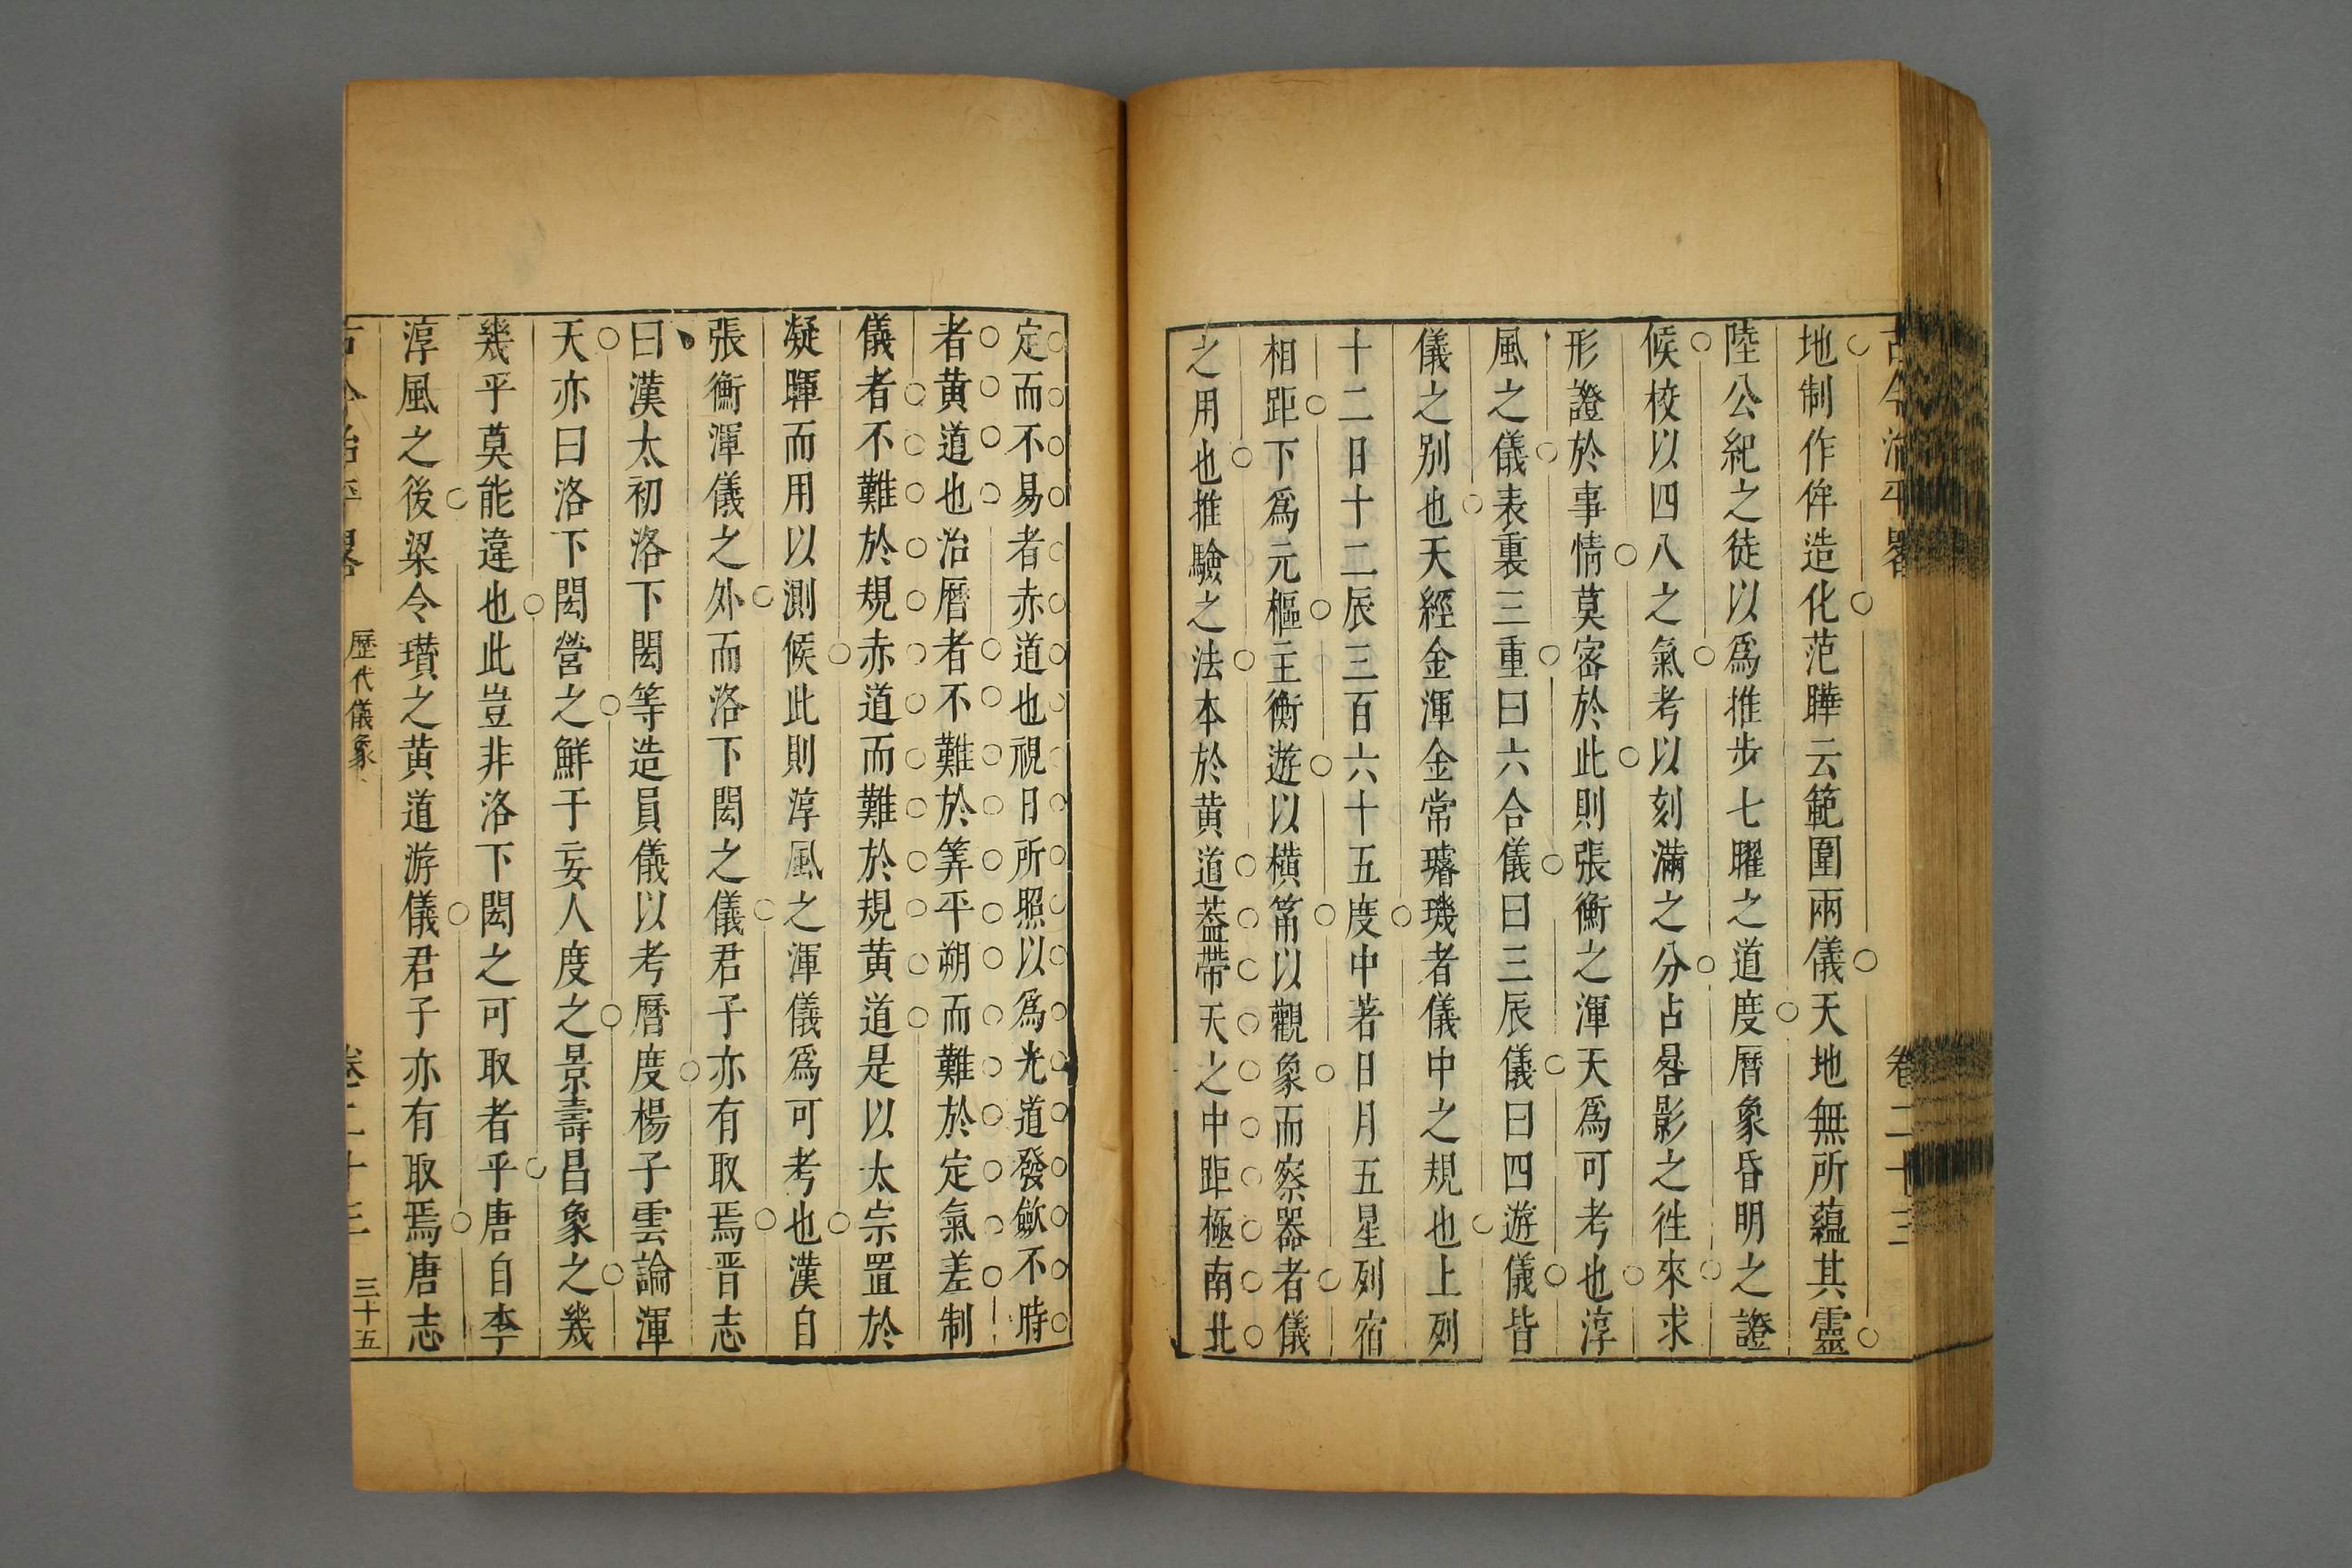 古今治平畧 卷二十三
地制作侔造化范曄云範圍兩儀天地無所蘊其靈
陸公紀之徒以為推步七曜之道度曆象昏明之證
候校以四八之氣考以刻滿之分占晷影之徃來求
形證於事情莫宻於此則張衡之渾天爲可考也淳
風之儀表裏三重曰六合儀曰三辰儀曰四遊儀皆
儀之别也天經金渾金常璿璣者儀中之規也上列
十二日十二辰三百六十五度中著日月五星列宿
相距下爲元樞玊衡遊以橫筩以觀象而察器者儀
之用也推驗之法本於黄道葢帶天之中距極南北
定而不易者赤道也視日所照以爲光道發歛不時
者黄道也治曆者不難於筭平朔而難於定氣差制
儀者不難於規赤道而難於規黄道是以太宗置於
凝暉而用以測候此則淳風之渾儀爲可考也漢自
張衡渾儀之外而洛下閎之儀君子亦有取焉晋志
曰漢太初洛下閎等造員儀以考曆度楊子雲論渾
天亦曰洛下閎營之鮮于妄人度之景壽昌象之幾
幾乎莫能違也此豈非洛下閎之可取者乎唐自李
淳風之後梁令瓚之黄道游儀君子亦有取焉唐志
古今治平畧 歷代儀象 卷二十三 三十五